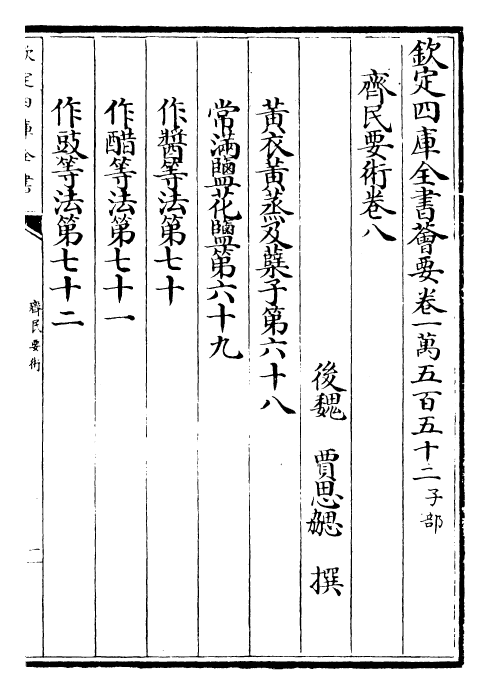 欽定四庫全書薈要卷一萬五百五十二子部
齊民要術卷八
後魏 賈思勰 撰
黃衣黃蒸及櫱子第六十八
常滿鹽花鹽第六十九
作醬等法第七十
作醋等法第七十一
作豉等法第七十二
欽定四庫全書
齊民要術
一